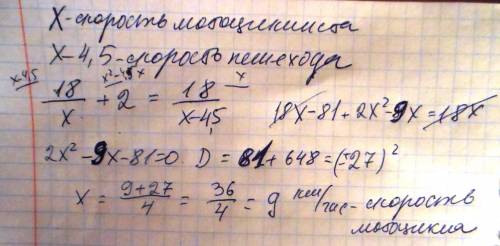 X-скорость мотоциклиста
X-4,5-скорость пешехода
x-4,5 x²-4,5x x
18/x + 2 = 18/(x-4,5) 18x-81+2x²-9x=18x
2x²-9x-81=0 D = 81+648=(±27)²
x = (9+27)/4 = 36/4 = 9 км/час - скорость
мотоцикла